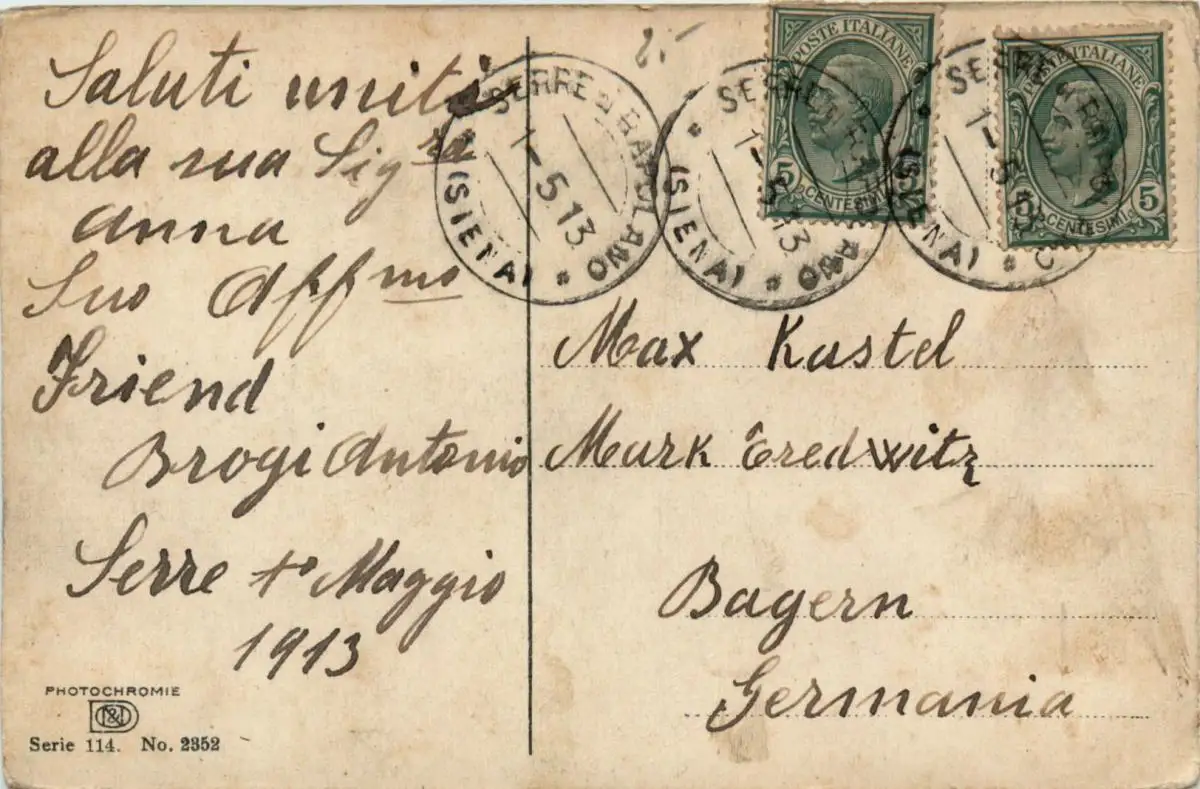 Saluti uniti
alla sua Sig.ra
Anna
Suo Affmo
Friend
Brogi Antonio
Serre 1o Maggio
1913
PHOTOCHROMIE
Serie 114. No. 2352
2.-
SERRE DI RAPOLANO
1-5 13
(SIENA)
SERRE DI RAPOLANO
1-5 13
(SIENA)
SERRE DI RAPOLANO
1-5 13
(SIENA)
POSTE ITALIANE
5 CENTESIMI 5
POSTE ITALIANE
5 CENTESIMI 5
Max Kastel
Mark Eredwitz
Bagern
Germania